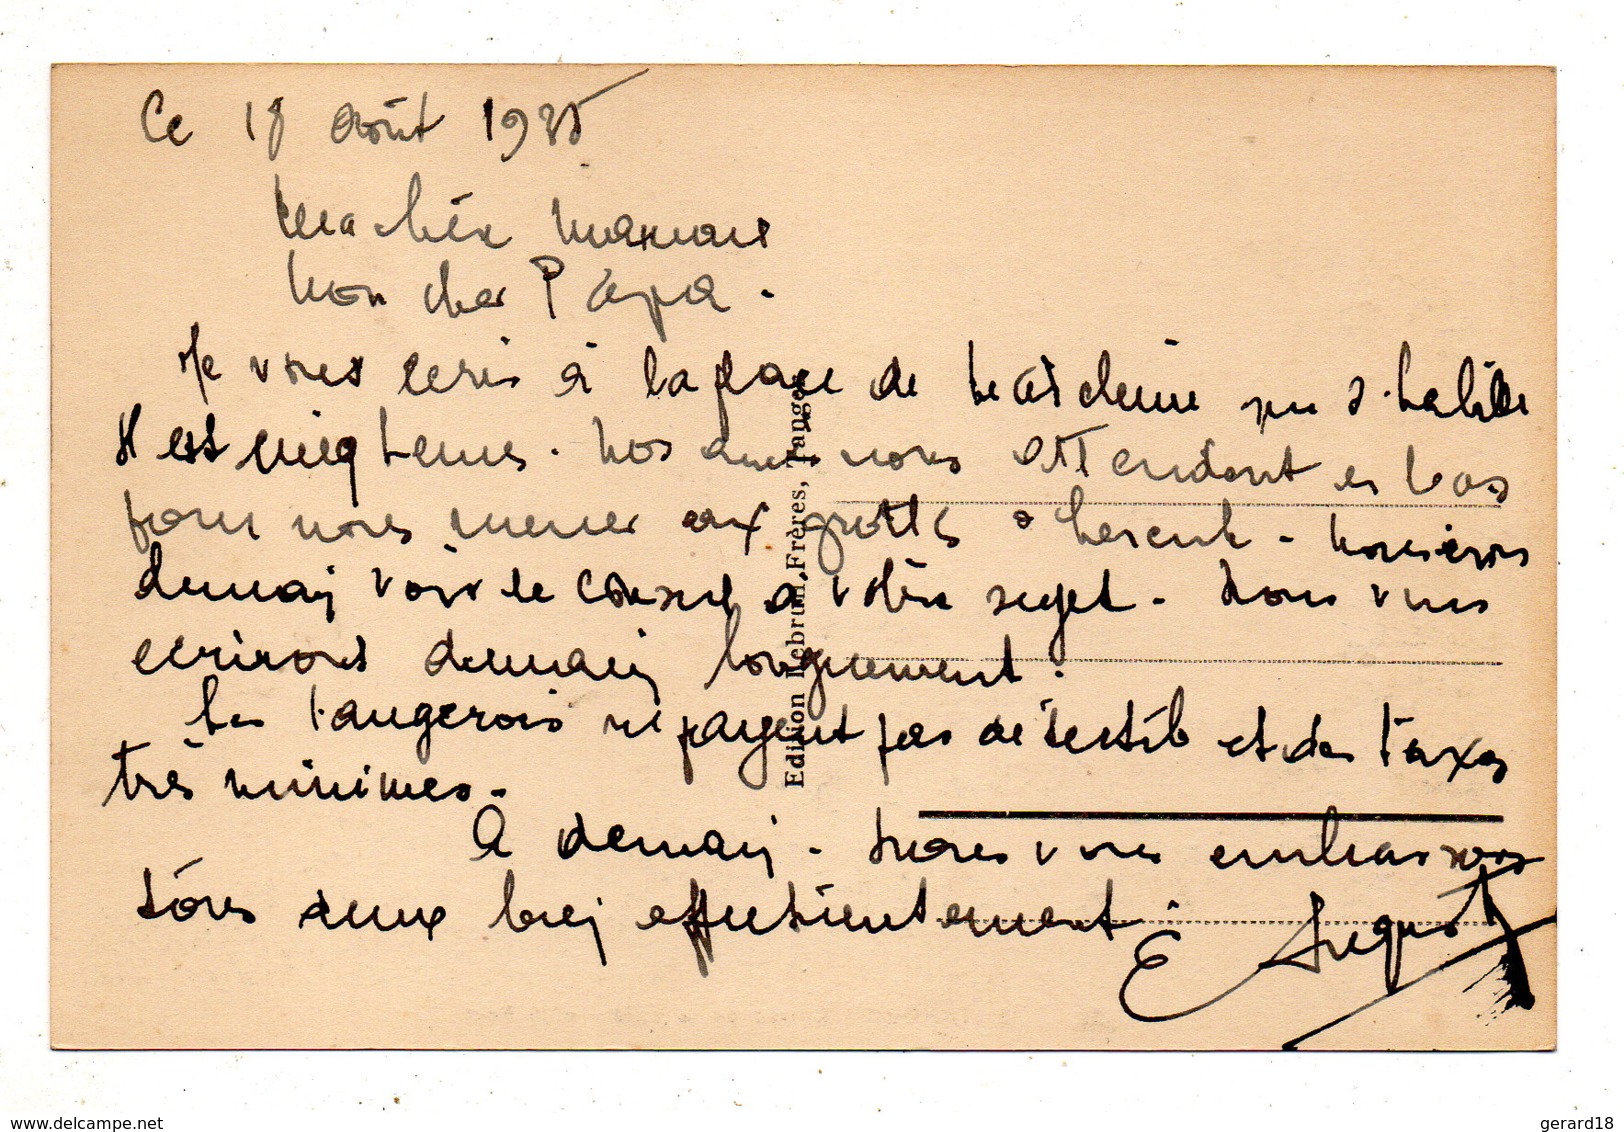 Ce 18 Août 1935
Ma chère maman
Mon cher Papa.
Je vous écris à la place de qui s'habille
Il est cinq heures. Nos amis nous attendent en bas
pour nous mener aux grottes d'hercule. Nous irons
demain voir le consul à votre sujet. Nous vous
écrirons demain longuement.
Les tangerois ne payent pas de et des taxes
très minimes.
A demain. Nous vous embrassons
tous deux bien affectueusement.
Edition Lebrun Frères, Tanger
www.delcampe.net
gerard18